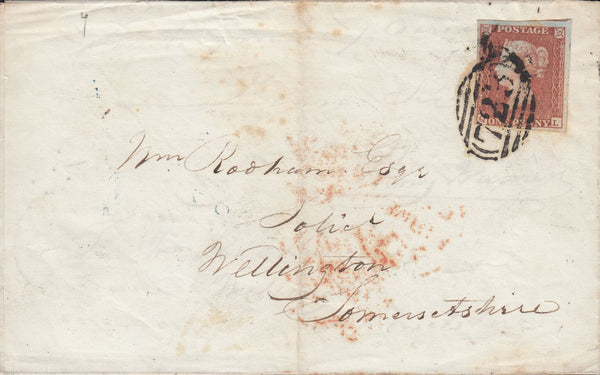 POSTAGE
ONE PENNY L
Wm Rodham Esqr
Solicr
Wellington
Somersetshire